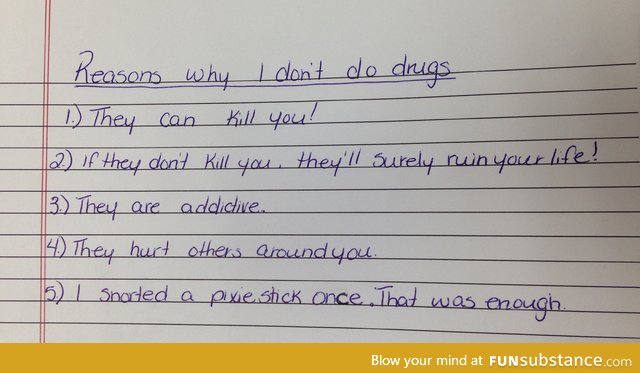 Reasons why I don't do drugs
1.) They can kill you!
2) If they don't kill you, they'll surely ruin your life!
3.) They are addictive.
4.) They hurt others around you.
5) I snorted a pixie stick once. That was enough.
Blow your mind at FUNsubstance.com